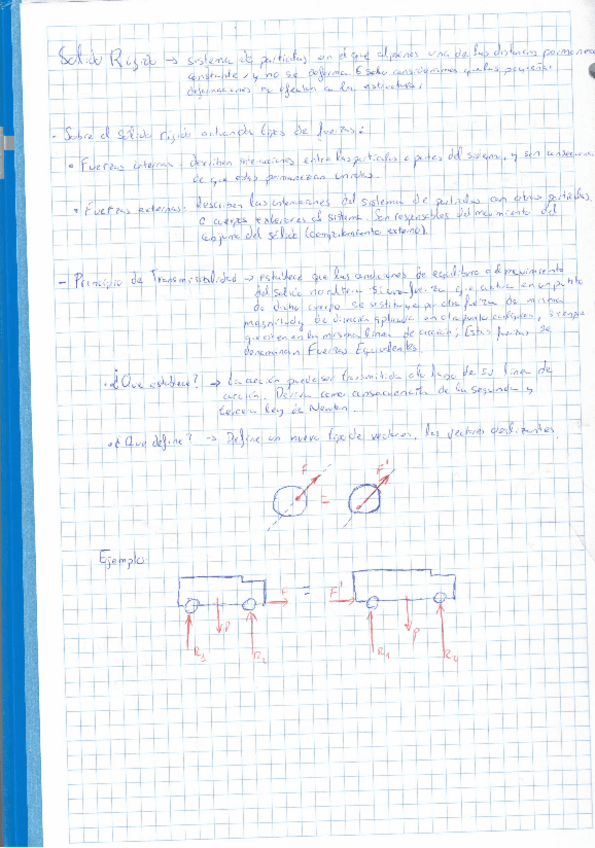 Solido Rigido → sistema de particulas en el que algunas una de las distancias permanece
constante, y no se deforma. Esto consideramos que las pequeñas
deformaciones no afectan a las estructuras.
- Sobre el sólido rigido actuan dos tipos de fuerzas:
• Fuerzas internas: describen interacciones entre las particulas o partes del sistema, y son consecuencia
de que estas permanezcan unidas.
• Fuerzas externas: Describen las interacciones del sistema de particulas con otras particulas,
o cuerpos exteriores al sistema. Son responsables del movimiento del
conjunto del sólido (comportamiento externo).
- Principio de Transmisibilidad → establece que las condiciones de equilibrio o de movimiento
del solido no alteran si una fuerza que actua en un punto
de dicho cuerpo se sustituye por otra fuerza de misma
magnitud y de dirección aplicada en otro punto cualquiera, siempre
que esten en la misma linea de acción; Estas fuerzas se
denominan Fuerzas Equivalentes.
• ¿Que establece? → La acción puede ser transmitida a lo largo de su linea de
acción. Deriva como consecuencia de la segunda y
tercera ley de Newton.
• ¿Que define? → Define un nuevo tipo de vectores, los vectores deslizantes.
F = F'
Ejemplo:
F = F'
P P
R1 R2 R1 R2